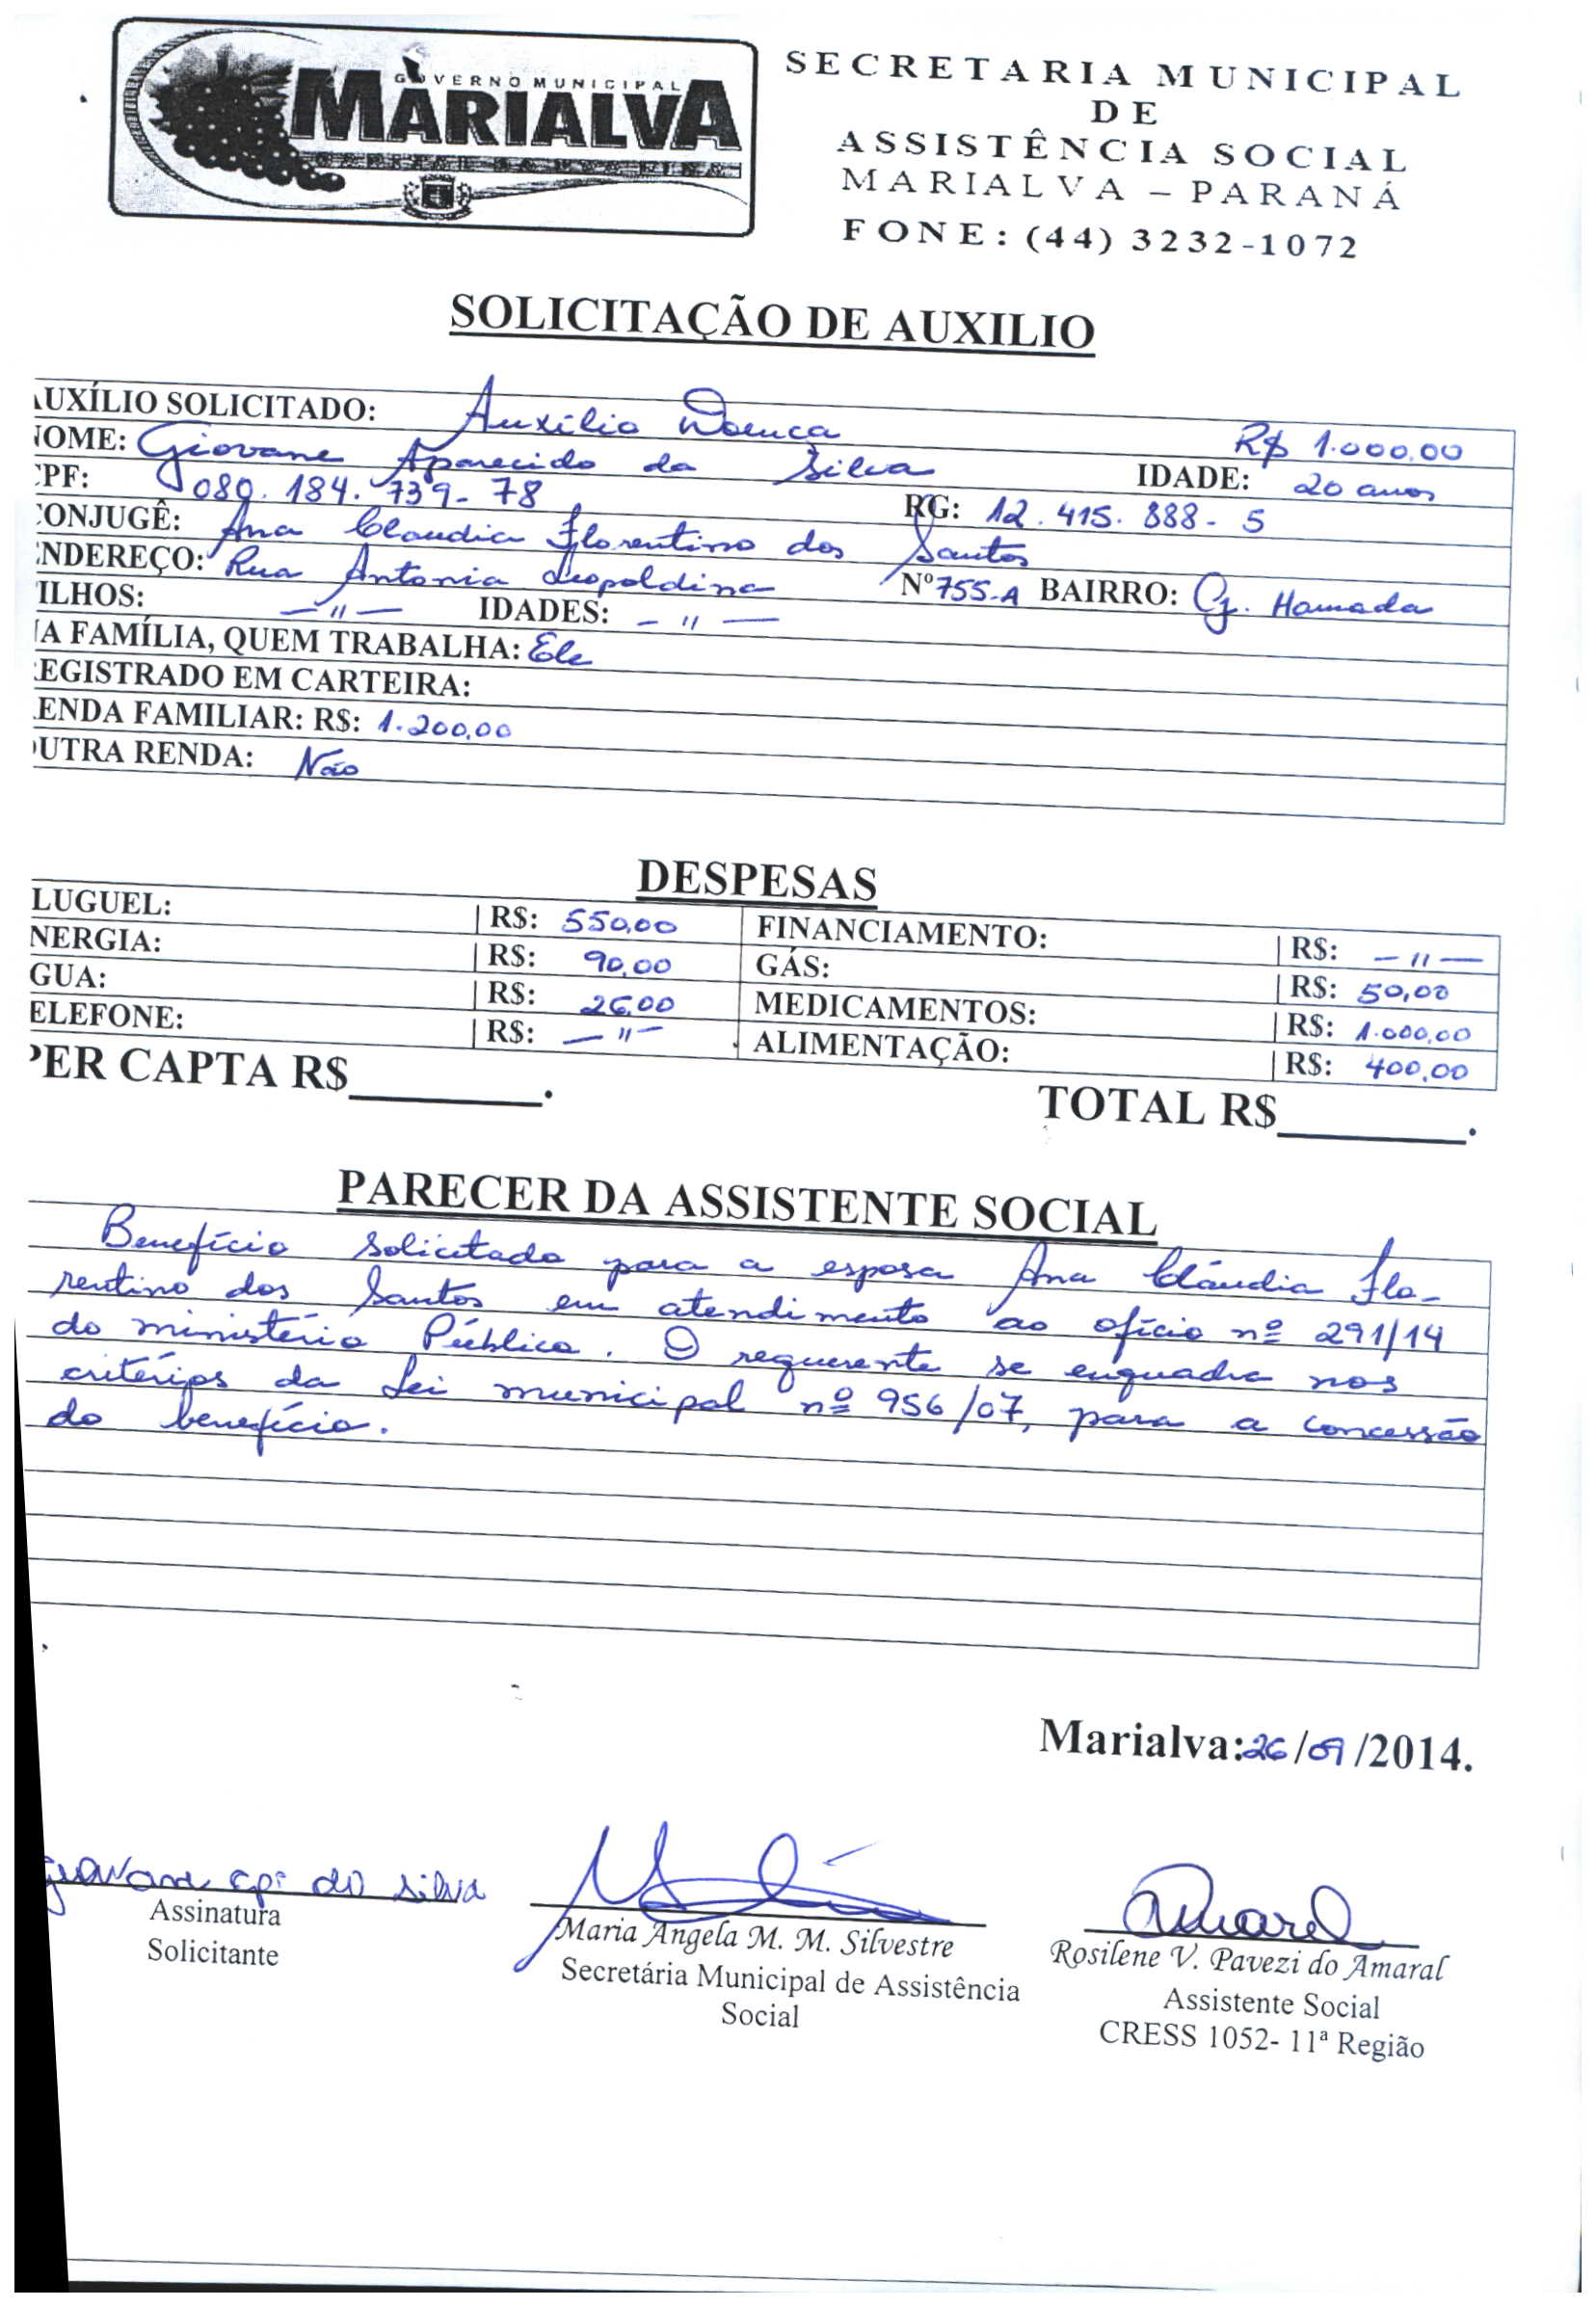 GOVERNO MUNICIPAL
MARIALVA
SECRETARIA MUNICIPAL
DE
ASSISTÊNCIA SOCIAL
MARIALVA – PARANÁ
FONE: (44) 3232-1072
SOLICITAÇÃO DE AUXILIO
UXÍLIO SOLICITADO: Auxílio Doença R$ 1.000,00
NOME: Giovane Aparecido da Silva IDADE: 20 anos
CPF: 080.184.739-78 RG: 12.415.888-5
CONJUGÊ: Ana Claudia Florentino dos Santos
NDEREÇO: Rua Antonia Leopoldina Nº 755-A BAIRRO: Cj. Hamada
ILHOS: — " — IDADES: — " —
A FAMÍLIA, QUEM TRABALHA: Ele
EGISTRADO EM CARTEIRA:
ENDA FAMILIAR: R$: 1.200,00
UTRA RENDA: Não
DESPESAS
LUGUEL: R$: 550,00 FINANCIAMENTO: R$: — " —
NERGIA: R$: 90,00 GÁS: R$: 50,00
GUA: R$: 26,00 MEDICAMENTOS: R$: 1.000,00
ELEFONE: R$: — " — ALIMENTAÇÃO: R$: 400,00
PER CAPTA R$________. TOTAL R$________.
PARECER DA ASSISTENTE SOCIAL
Benefício solicitado para a esposa Ana Cláudia Flo-
rentino dos Santos em atendimento ao ofício nº 291/14
do ministério Público. O requerente se enquadra nos
critérios da Lei municipal nº 956/07, para a concessão
do benefício.
Marialva: 26/09/2014.
Giovane api da silva
Assinatura
Solicitante
Maria Angela M. M. Silvestre
Secretária Municipal de Assistência
Social
Amaral
Rosilene V. Pavezi do Amaral
Assistente Social
CRESS 1052- 11ª Região